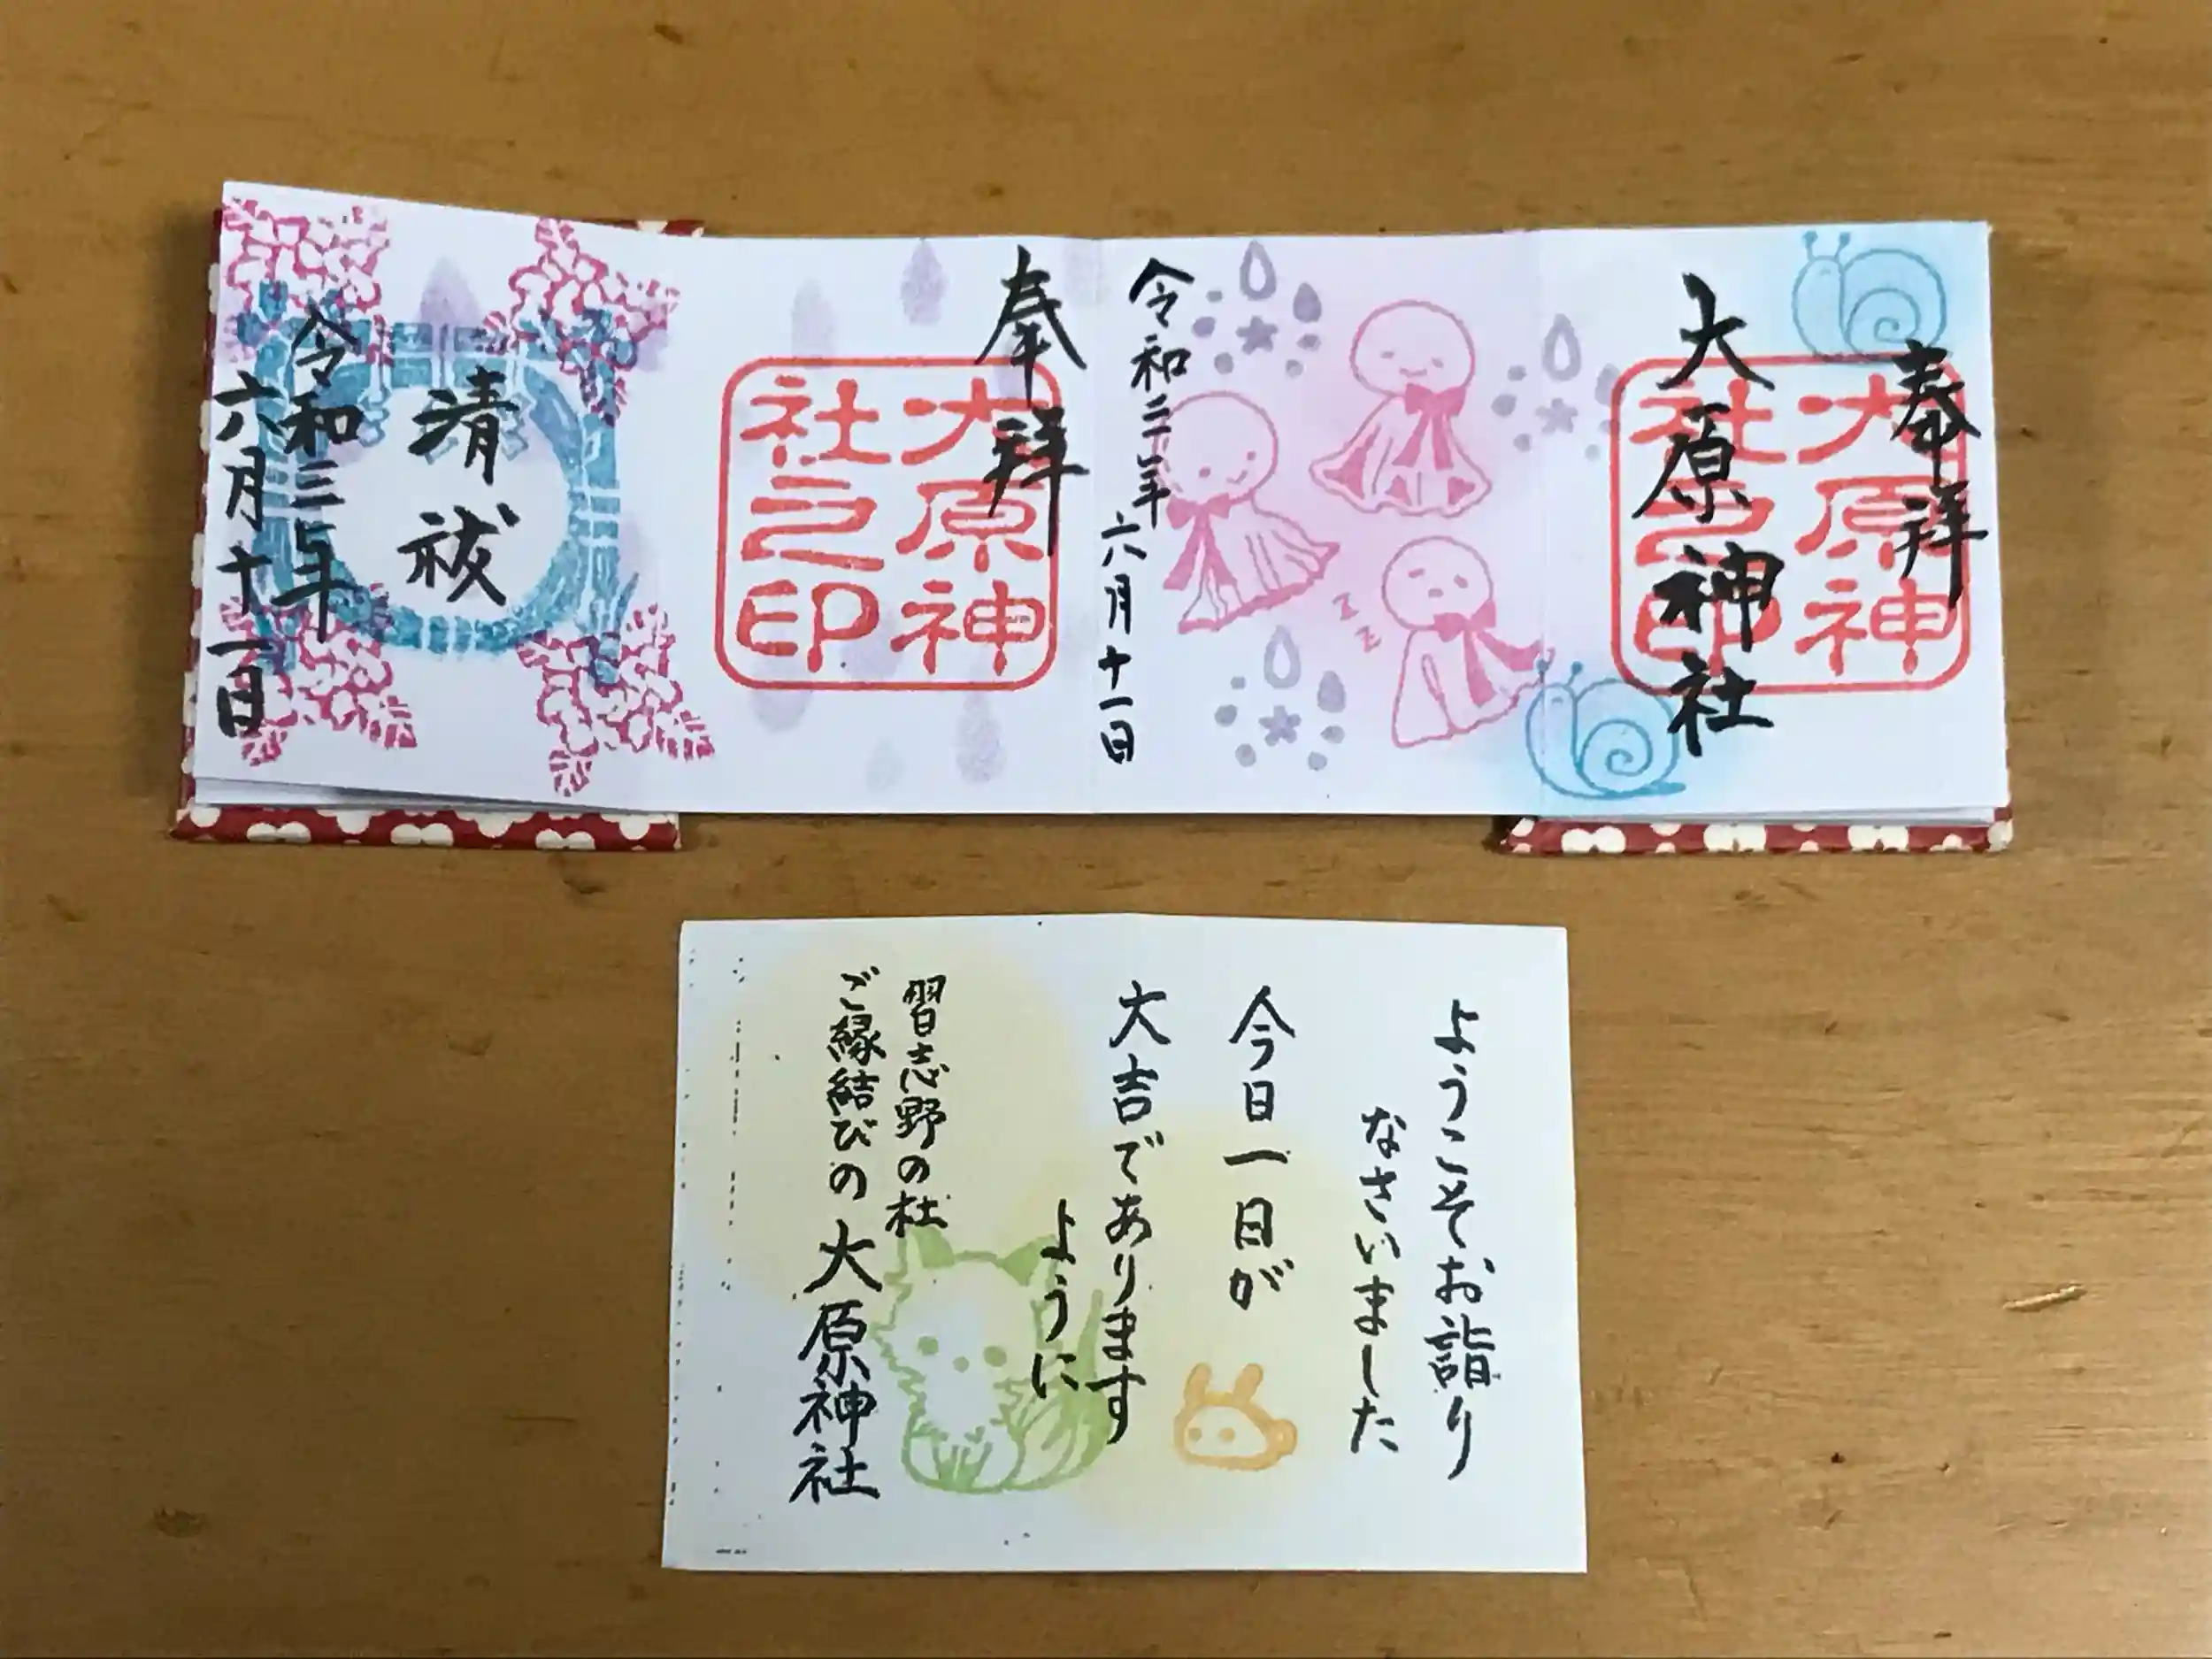 奉拝
大原神社
大原神
社之印
令和二年
六月十一日
zz
奉拝
大原神
社之印
清祓
令和三年
六月十一日
ようこそお詣り
なさいました
今日一日が
大吉であります
ように
習志野の杜
ご縁結びの大原神社